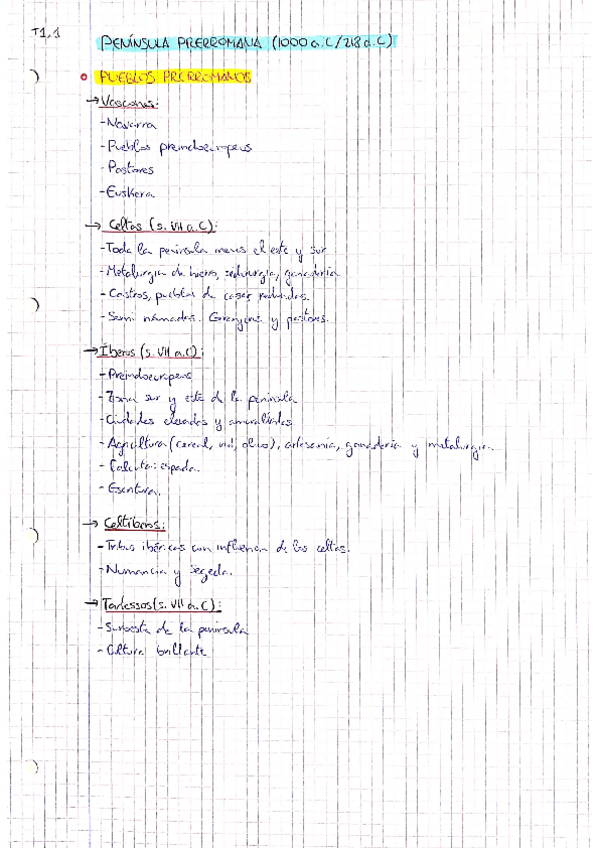 T1.1
PENÍNSULA PRERROMANA (1000 a.C/218 a.C)
PUEBLOS PRERROMANOS
→ Vascones:
- Navarra
- Pueblos preindoeuropeos
- Pastores
- Euskera.
→ Celtas (s. VII a.C):
- Toda la península menos el este y sur
- Metalurgia de hierro, siderurgia, ganadería
- Castros, pueblos de casas redondas.
- Semi nómadas. Granjeros y pastores.
→ Íberos (s. VII a.C):
- Preindoeuropeos
- Zona sur y este de la península
- Ciudades elevadas y amuralladas
- Agricultura (cereal, vid, olivo), artesanía, ganadería y metalurgia.
- Falcata: espada.
- Escritura.
→ Celtíberos:
- Tribus ibéricas con influencia de los celtas.
- Numancia y Segeda.
→ Tartessos (s. VII a.C):
- Suroeste de la península
- Cultura brillante